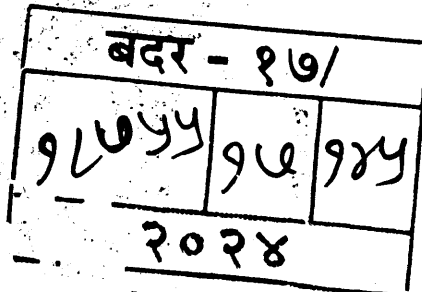 बदर - १७/
१८७५५ १७ १४५
२०२४